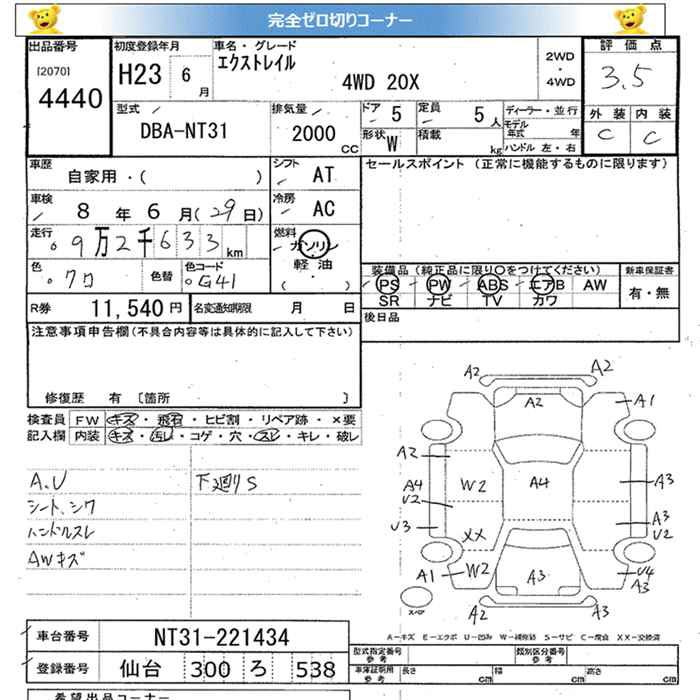 完全ゼロ切りコーナー
出品番号
[2070]
4440
初度登録年月
H23 6 月
車名・グレード
エクストレイル
4WD 20X
2WD
・
4WD
評価点
3.5
外装 内装
C C
型式
DBA-NT31
排気量
2000 CC
ドア 5
定員 5 人
形状 W
積載 kg
ディーラー・並行
モデル年式 年
ハンドル 左・右
車歴
自家用・( )
シフト AT
セールスポイント (正常に機能するものに限ります)
車検
8 年 6 月(29 日)
冷房 AC
走行
9万2千633 km
燃料
ガソリン
軽油
( )
色
クロ
色替
色コード
G41
装備品(純正品に限り〇をつけてください)
PS PW ABS エアB AW
SR ナビ TV カワ
新車保証書
有・無
R券 11,540 円
名変通知期限 月 日
後日品
注意事項申告欄(不具合内容等は具体的に記入して下さい)
修復歴 有 〔箇所 〕
検査員
記入欄
FW キズ・飛石・ヒビ割・リペア跡・×要
内装 キズ・汚レ・コゲ・穴・スレ・キレ・破レ
A.U
シート.シワ
ハンドルスレ
AWキズ
下廻りS
A2 A2
A2
A1
A2
A4
U2
W2
A4
A3
U3
XX
A3
U2
A1
W2
A3
U4
A3
スペア
A2 A3
A-キズ E-エクボ U-凹み W-補修跡 S-サビ C-腐食 XX-交換済
車台番号 NT31-221434
登録番号 仙台 300 ろ 538
型式指定番号
参考
類別区分番号
参考
車庫証明用
参考
長さ cm 幅 cm 高さ cm
希望出品コーナー